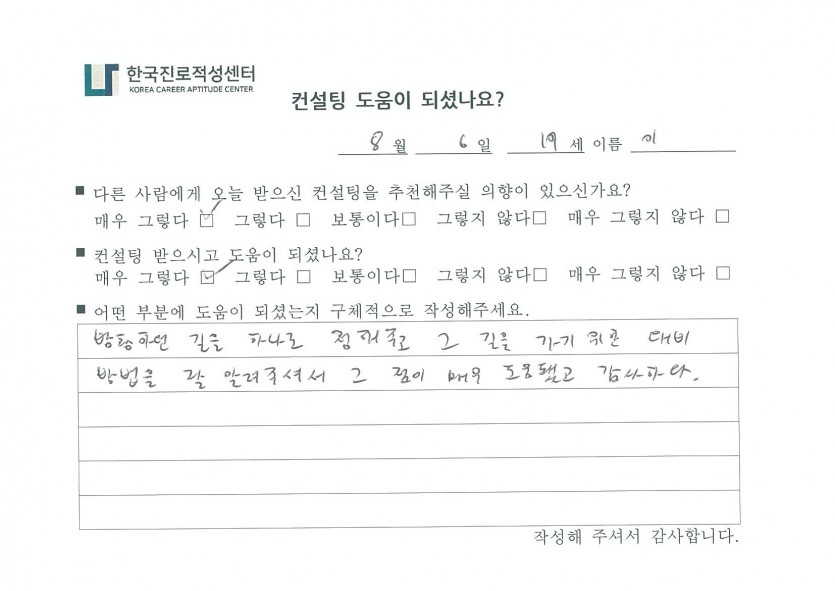 한국진로적성센터
KOREA CAREER APTITUDE CENTER
컨설팅 도움이 되셨나요?
8 월 6 일 19 세 이름 이
■ 다른 사람에게 오늘 받으신 컨설팅을 추천해주실 의향이 있으신가요?
매우 그렇다 ☑ 그렇다 □ 보통이다□ 그렇지 않다□ 매우 그렇지 않다 □
■ 컨설팅 받으시고 도움이 되셨나요?
매우 그렇다 ☑ 그렇다 □ 보통이다□ 그렇지 않다□ 매우 그렇지 않다 □
■ 어떤 부분에 도움이 되셨는지 구체적으로 작성해주세요.
방황하던 길을 하나로 정해주고 그 길을 가기 위한 대비
방법을 잘 알려주셔서 그 점이 매우 도움됐고 감사하다.
작성해 주셔서 감사합니다.